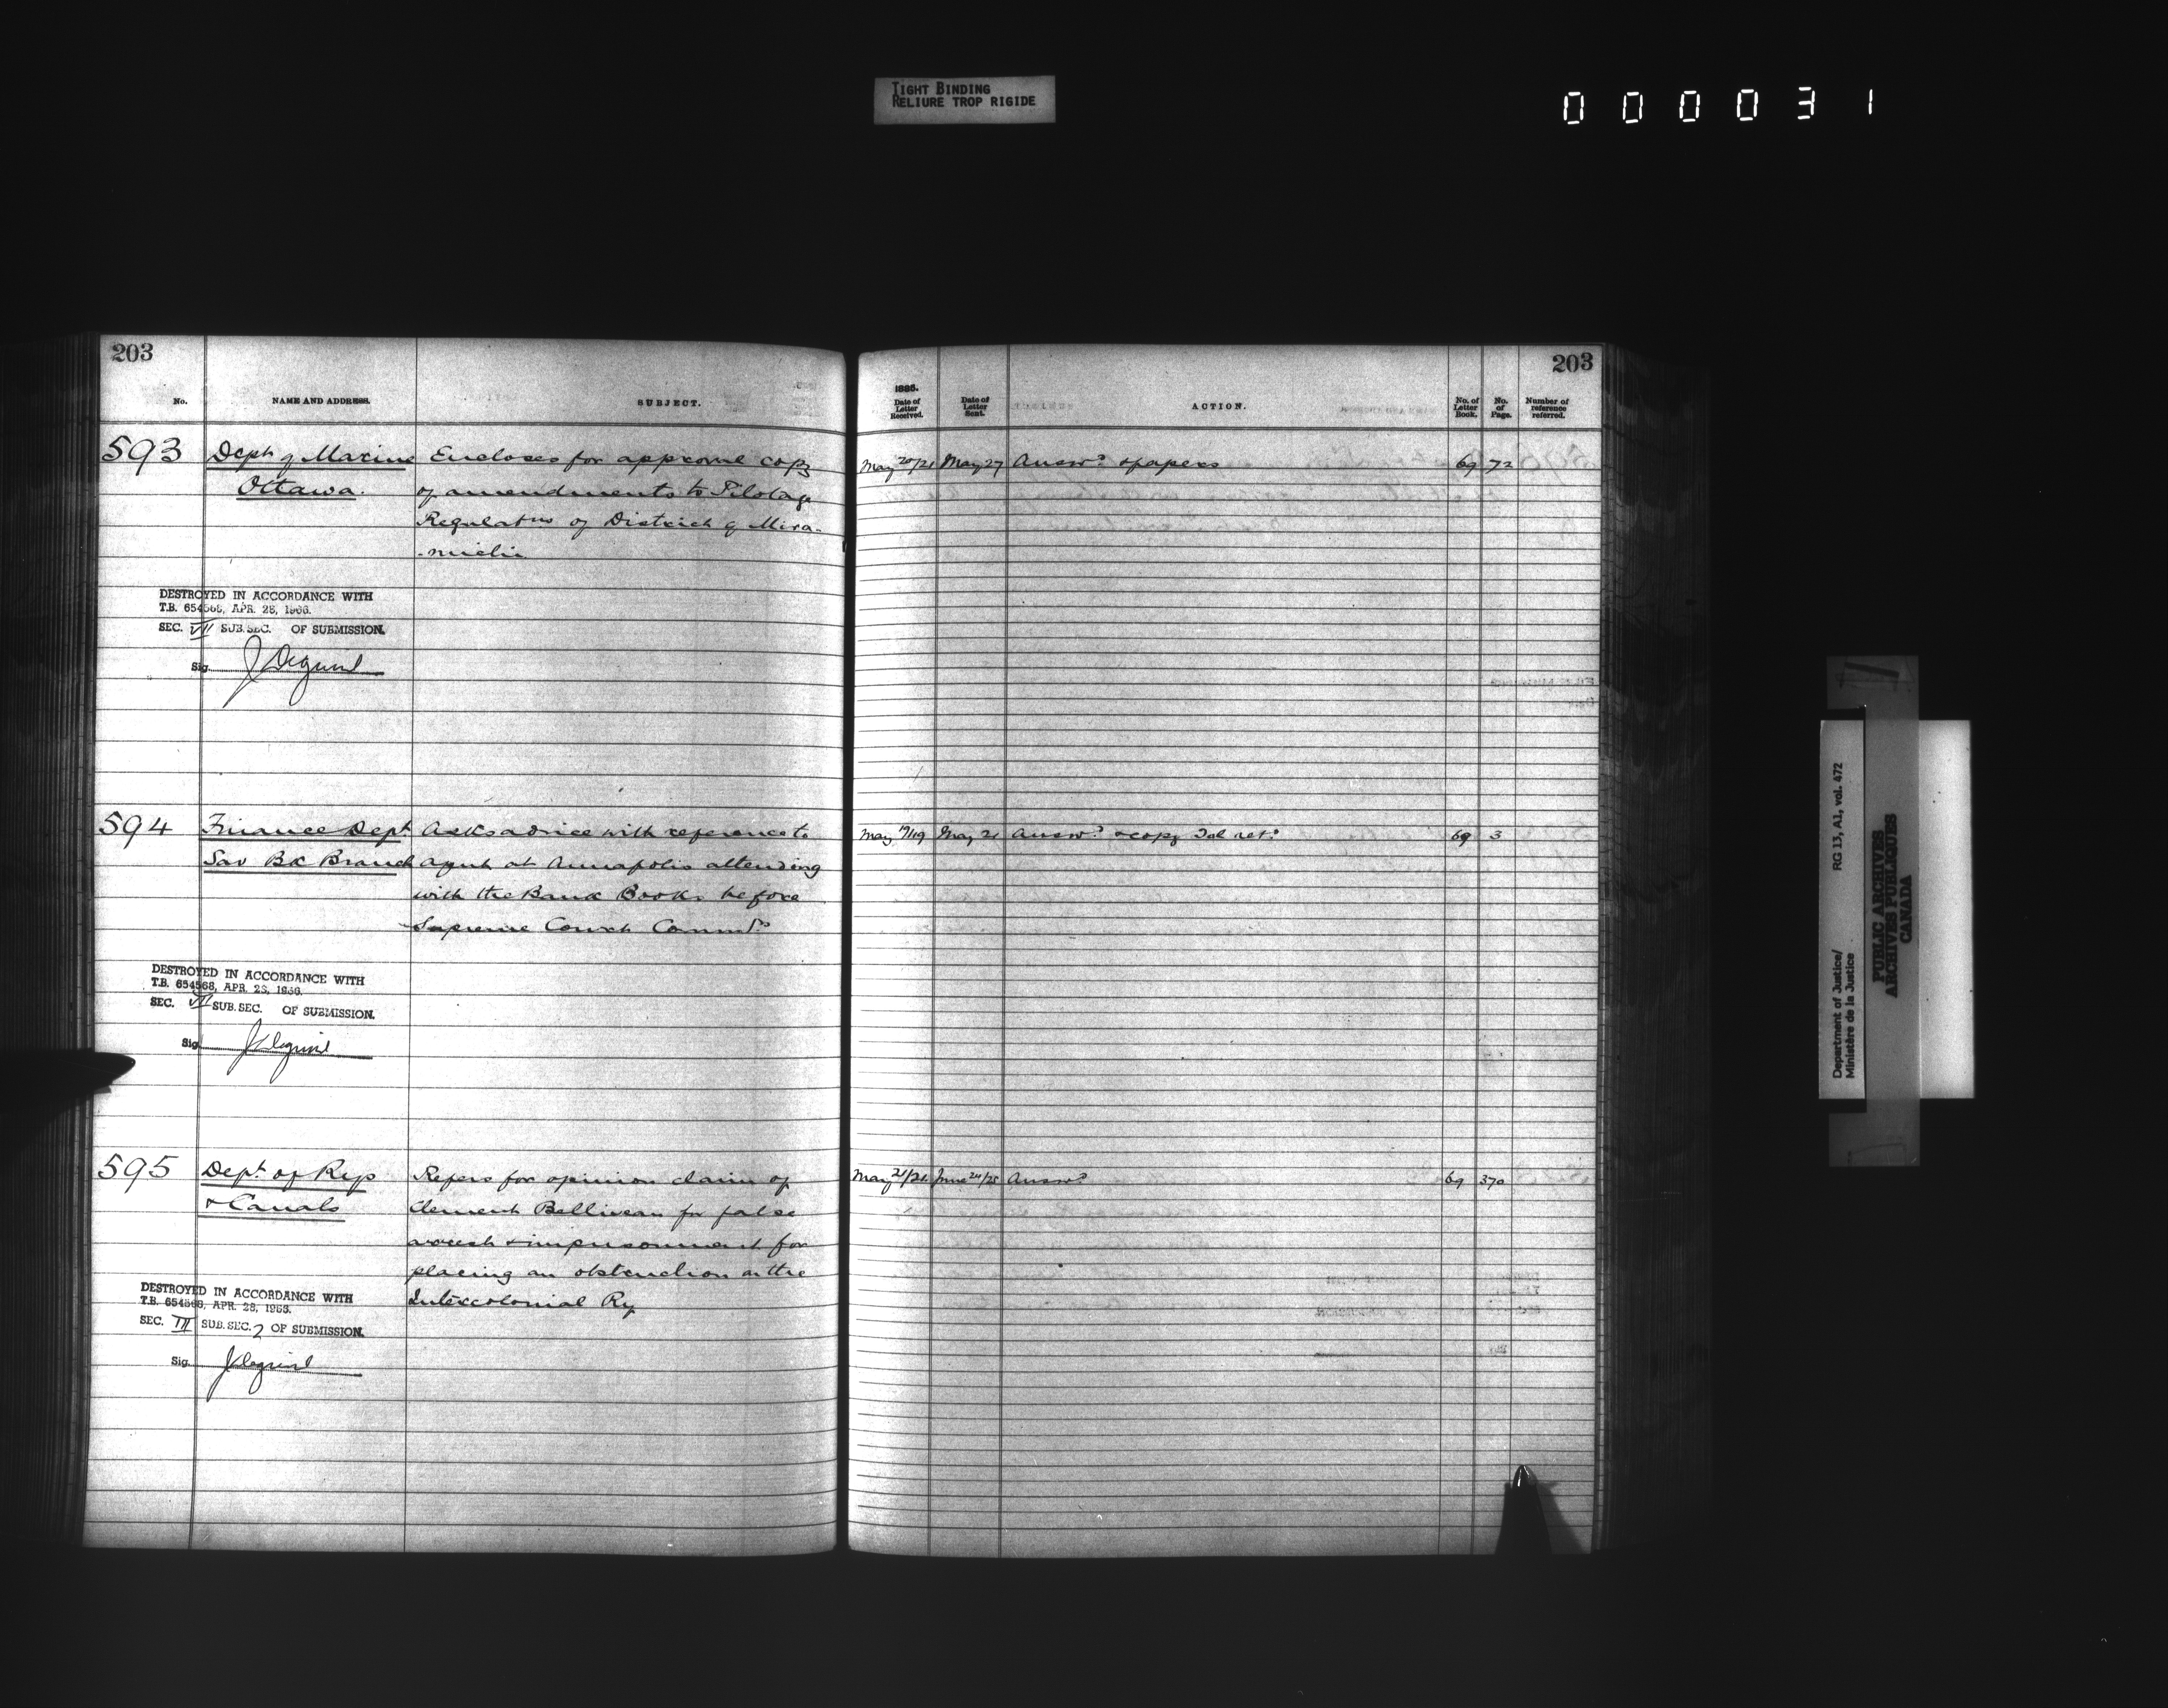 TIGHT BINDING
RELIURE TROP RIGIDE
000031
203
No.
NAME AND ADDRESS.
SUBJECT.
593 Dept of Marine Encloses for approval copy
Ottawa. of amendments to Pilotage
Regulatns of District of Mira-
-michi
DESTROYED IN ACCORDANCE WITH
T.B. 654568, APR. 28, 1966.
SEC. VII SUB.SEC. OF SUBMISSION.
Sig.
594 Finance Dept Asks advice with reference to
Sav Bk Branch agent at Annapolis attending
with the Bank Books before
Supreme Court
DESTROYED IN ACCORDANCE WITH
T.B. 654568, APR. 28, 1966.
SEC. VII SUB.SEC. OF SUBMISSION.
Sig.
595 Dept. of Rys Refers for opinion claim of
& Canals Clement Belliveau for false
arrest & imprisonment for
placing an obstruction on the
Intercolonial Ry
DESTROYED IN ACCORDANCE WITH
T.B. 654568, APR. 28, 1966.
SEC. III SUB.SEC. 2 OF SUBMISSION.
Sig.
203
1886.
Date of Letter Received.
Date of Letter Sent.
ACTION.
No. of Letter Book.
No. of Page.
Number of reference referred.
May 20/21 May 27 Answd & papers 69 72
May 19/19 May 21 Answd & copy Tel retd 69 3
May 21/21 June 24/25 Answd 69 370
Department of Justice/ RG 13, A1, vol. 472
Ministère de la Justice
PUBLIC ARCHIVES
ARCHIVES PUBLIQUES
CANADA